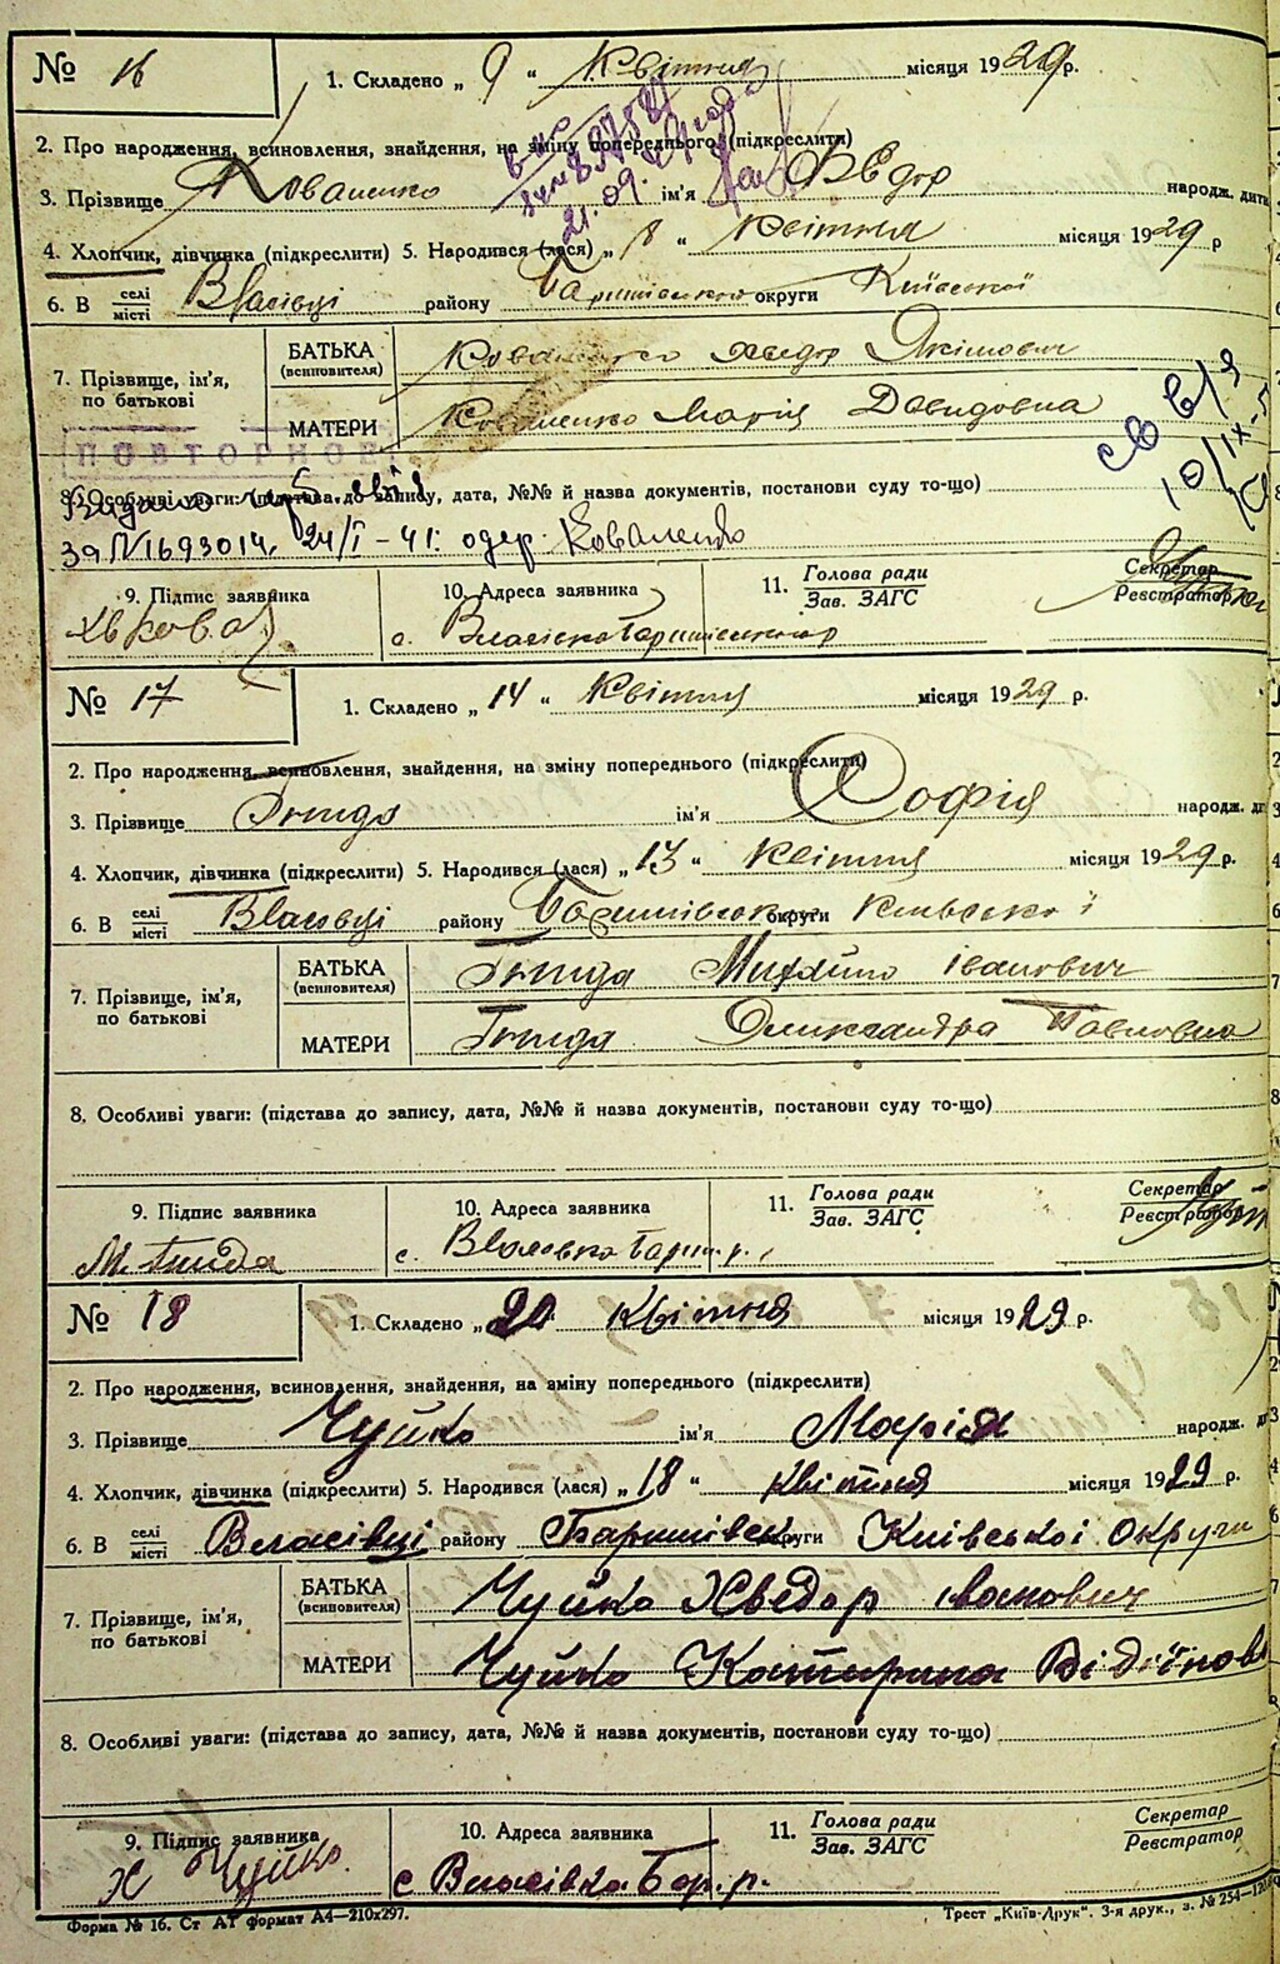 № 16 1. Складено „ 9 “ Квітня місяця 1929 р.
2. Про народження, всиновлення, знайдення, на зміну попереднього (підкреслити)
3. Прізвище Коваленко ім'я Хведор народж. дити
21.09.
4. Хлопчик, дівчинка (підкреслити) 5. Народився (лася) „ 8 “ Квітня місяця 1929 р
6. В селі/місті Власівці району Баришівського округи Київської
7. Прізвище, ім'я, по батькові
БАТЬКА (всиновителя) Коваленко Хведор Якімович
МАТЕРИ Коваленко Марія Давидовна
ПОВТОРНОЕ
8. Особливі уваги: (підстава до запису, дата, №№ й назва документів, постанови суду то-що)
Видано
за №1693014. 24/I – 41. одер. Коваленко
9. Підпис заявника 10. Адреса заявника 11. Голова ради/Зав. ЗАГС Секретар/Реєстратор
Хв Кова
с. Власівка
№ 17 1. Складено „ 14 “ Квітня місяця 1929 р.
2. Про народження, всиновлення, знайдення, на зміну попереднього (підкреслити)
3. Прізвище Гнида ім'я Софія народж. ди
4. Хлопчик, дівчинка (підкреслити) 5. Народився (лася) „ 13 “ Квітня місяця 1929 р.
6. В селі/місті Власовці району Баришівського округи Київської
7. Прізвище, ім'я, по батькові
БАТЬКА (всиновителя) Гнида Михайло Іванович
МАТЕРИ Гнида Олександра Павловна
8. Особливі уваги: (підстава до запису, дата, №№ й назва документів, постанови суду то-що)
9. Підпис заявника 10. Адреса заявника 11. Голова ради/Зав. ЗАГС Секретар/Реєстратор
М. Гнида с. Власовка Бариш. р.
№ 18 1. Складено „ 20 “ Квітня місяця 1929 р.
2. Про народження, всиновлення, знайдення, на зміну попереднього (підкреслити)
3. Прізвище Чуйко ім'я Марія народж. ди
4. Хлопчик, дівчинка (підкреслити) 5. Народився (лася) „ 18 “ Квітня місяця 1929 р.
6. В селі/місті Власівці району Баришівськ округи Київської Округи
7. Прізвище, ім'я, по батькові
БАТЬКА (всиновителя) Чуйко Хведор Іванович
МАТЕРИ Чуйко Катирина
8. Особливі уваги: (підстава до запису, дата, №№ й назва документів, постанови суду то-що)
9. Підпис заявника 10. Адреса заявника 11. Голова ради/Зав. ЗАГС Секретар/Реєстратор
Х Чуйко. с Власівка Бар. р.
Форма № 16. Ст АТ формат А4—210х297. Трест „Київ-Друк“. 3-я друк., з. № 254—12